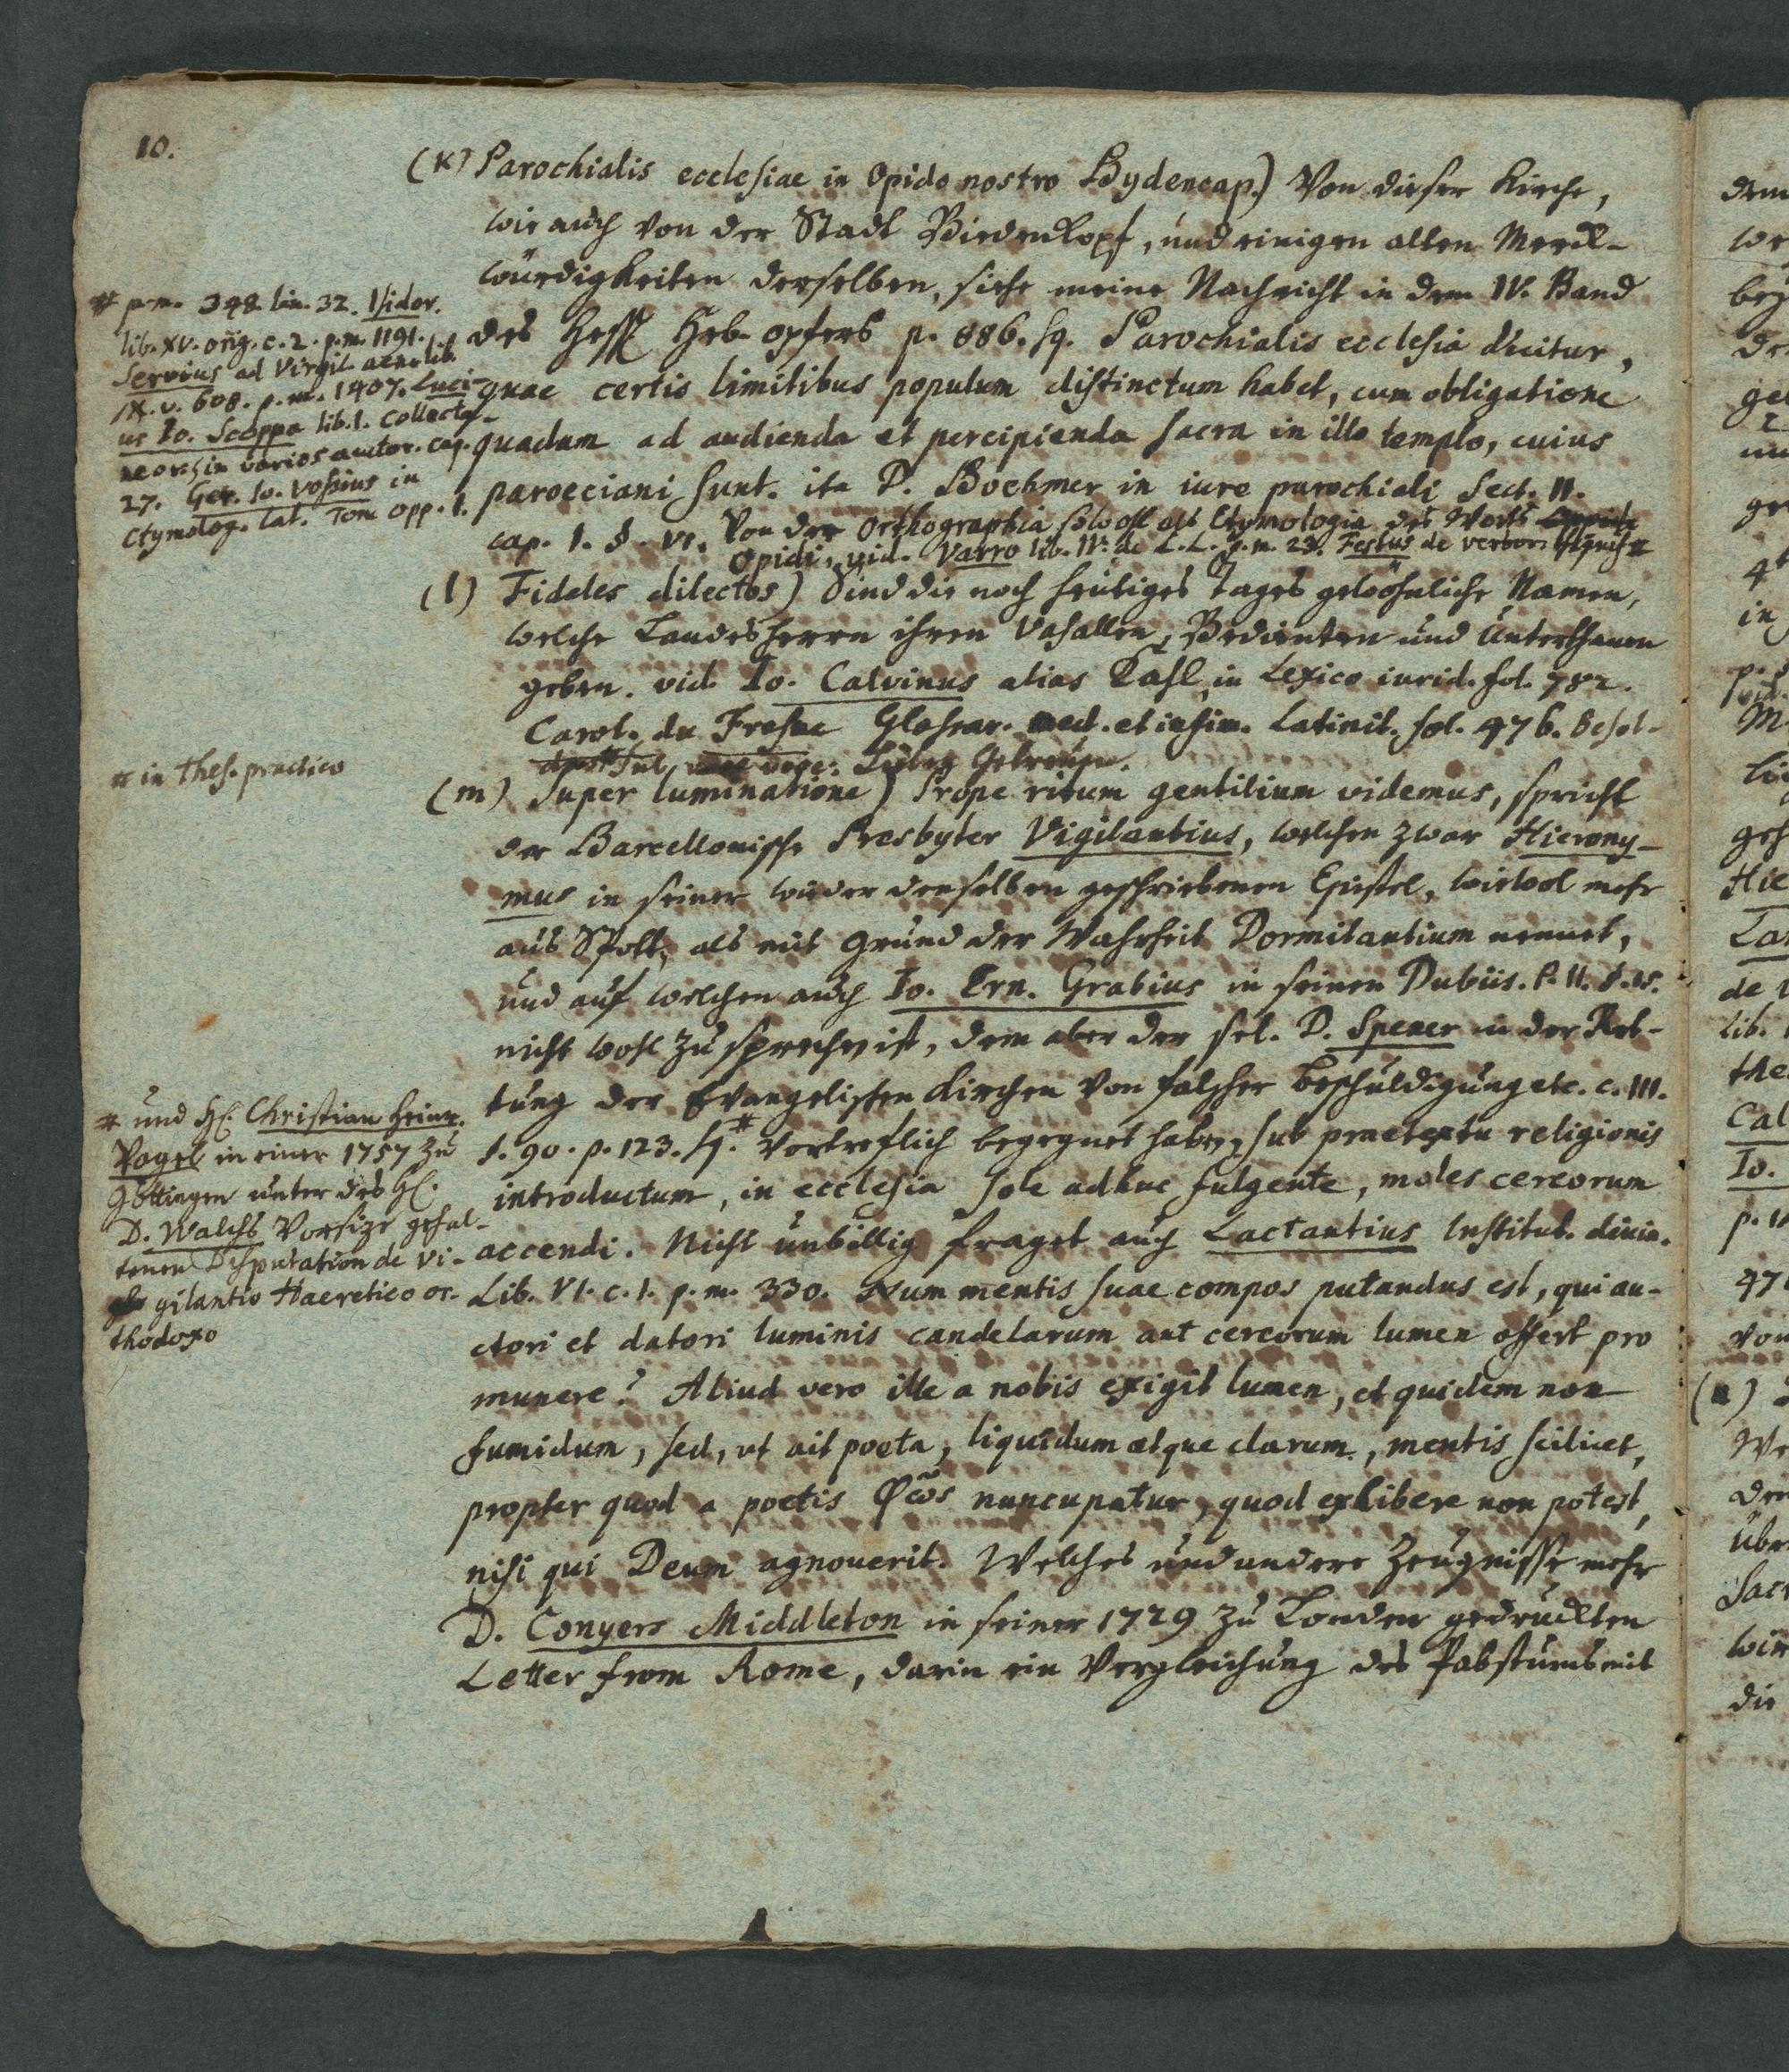 10.
(k) Parochialis ecclesiae in Opido nostro Bydencap.) Von dieser Kirche,
wie auch von der Stadt Biedenkopf, und einigen alten Merck-
würdigkeiten derselben, siehe meine Nachricht in dem IV. Band
des Hess. Heb-opfers p. 886. sq. Parochialis ecclesia dicitur,
quae certis limitibus populum distinctum habet, cum obligatione
quadam ad audienda et percipienda sacra in illo templo, cuius
paroeciani sunt. ita D. Boehmer in iure parochiali Sect. II.
cap. 1. §. VI. Von der Orthographia sowohl als Etymologia des Worts
Opidi, vid. Varro lib. IV. de L. L. p. m. 23. Festus de verbor. #
# p. m. 348. lin. 32. Isidor.
lib. XV. orig. c. 2. p. m. 1191.
Servius ad Virgil. aen. lib.
IX. v. 608. p. m. 1407. Luci-
us Io. Scoppa lib. 1. Collecta-
neor. in varios auctor. cap.
27. Ger. Io. Vossius in
Etymolog. lat. Tom. opp. 1.
(l) Fideles dilectos) Sind die noch heutiges Tages gewöhnliche Namen,
welche Landesherrn ihren Vasallen, Bedienten und Unterthanen
geben. vid. Io. Calvinus alias Kahl in Lexico iurid. fol. 782.
Carol. du Fresne Glossar. med. et infim. Latinit. fol. 476. Besol-
dus # sub voce: Lieben Getreuen.
# in thes. practico
(m) Super luminatione) Prope ritum gentilium videmus, spricht
der Barcellonische Presbyter Vigilantius, welchen zwar Hierony-
mus in seiner wider denselben geschriebenen Epistel, wiewol mehr
aus Spott, als mit Grund der Wahrheit Dormitantium nennet,
und auf welchen auch Io. Ern. Grabius in seinen Dubiis. P. II.
nicht wohl zu sprechen ist, dem aber der sel. D. Spener in der Ret-
tung der Evangelischen Kirchen von falscher Beschuldigung etc. c. III.
§. 90. p. 123. sq. # vortreflich begegnet haben, sub praetextu religionis
introductum, in ecclesia sole adhuc fulgente, moles cereorum
accendi. Nicht unbillig fraget auch Lactantius Institut. divin.
Lib. VI. c. 1. p. m. 330. Num mentis suae compos putandus est, qui au-
ctori et datori luminis candelarum aut cereorum lumen offert pro
munere? Aliud vero ille a nobis exigit lumen, et quidem non
fumidum, sed, vt ait poeta, liquidum atque clarum, mentis scilicet,
propter quod a poetis φῶς nuncupatur, quod exhibere non potest,
nisi qui Deum agnouerit. Welches und andere Zeugnisse mehr
D. Conyers Middleton in seiner 1729 zu Londen gedruckten
Letter from Rome, darin ein Vergleichung des Pabstums mit
# und H. Christian Heinr.
Vogel in einer 1757 zu
Göttingen unter des H.
D. Walchs Vorsize gehal-
tenen Disputation de Vi-
gilantio Haeretico or-
thodoxo